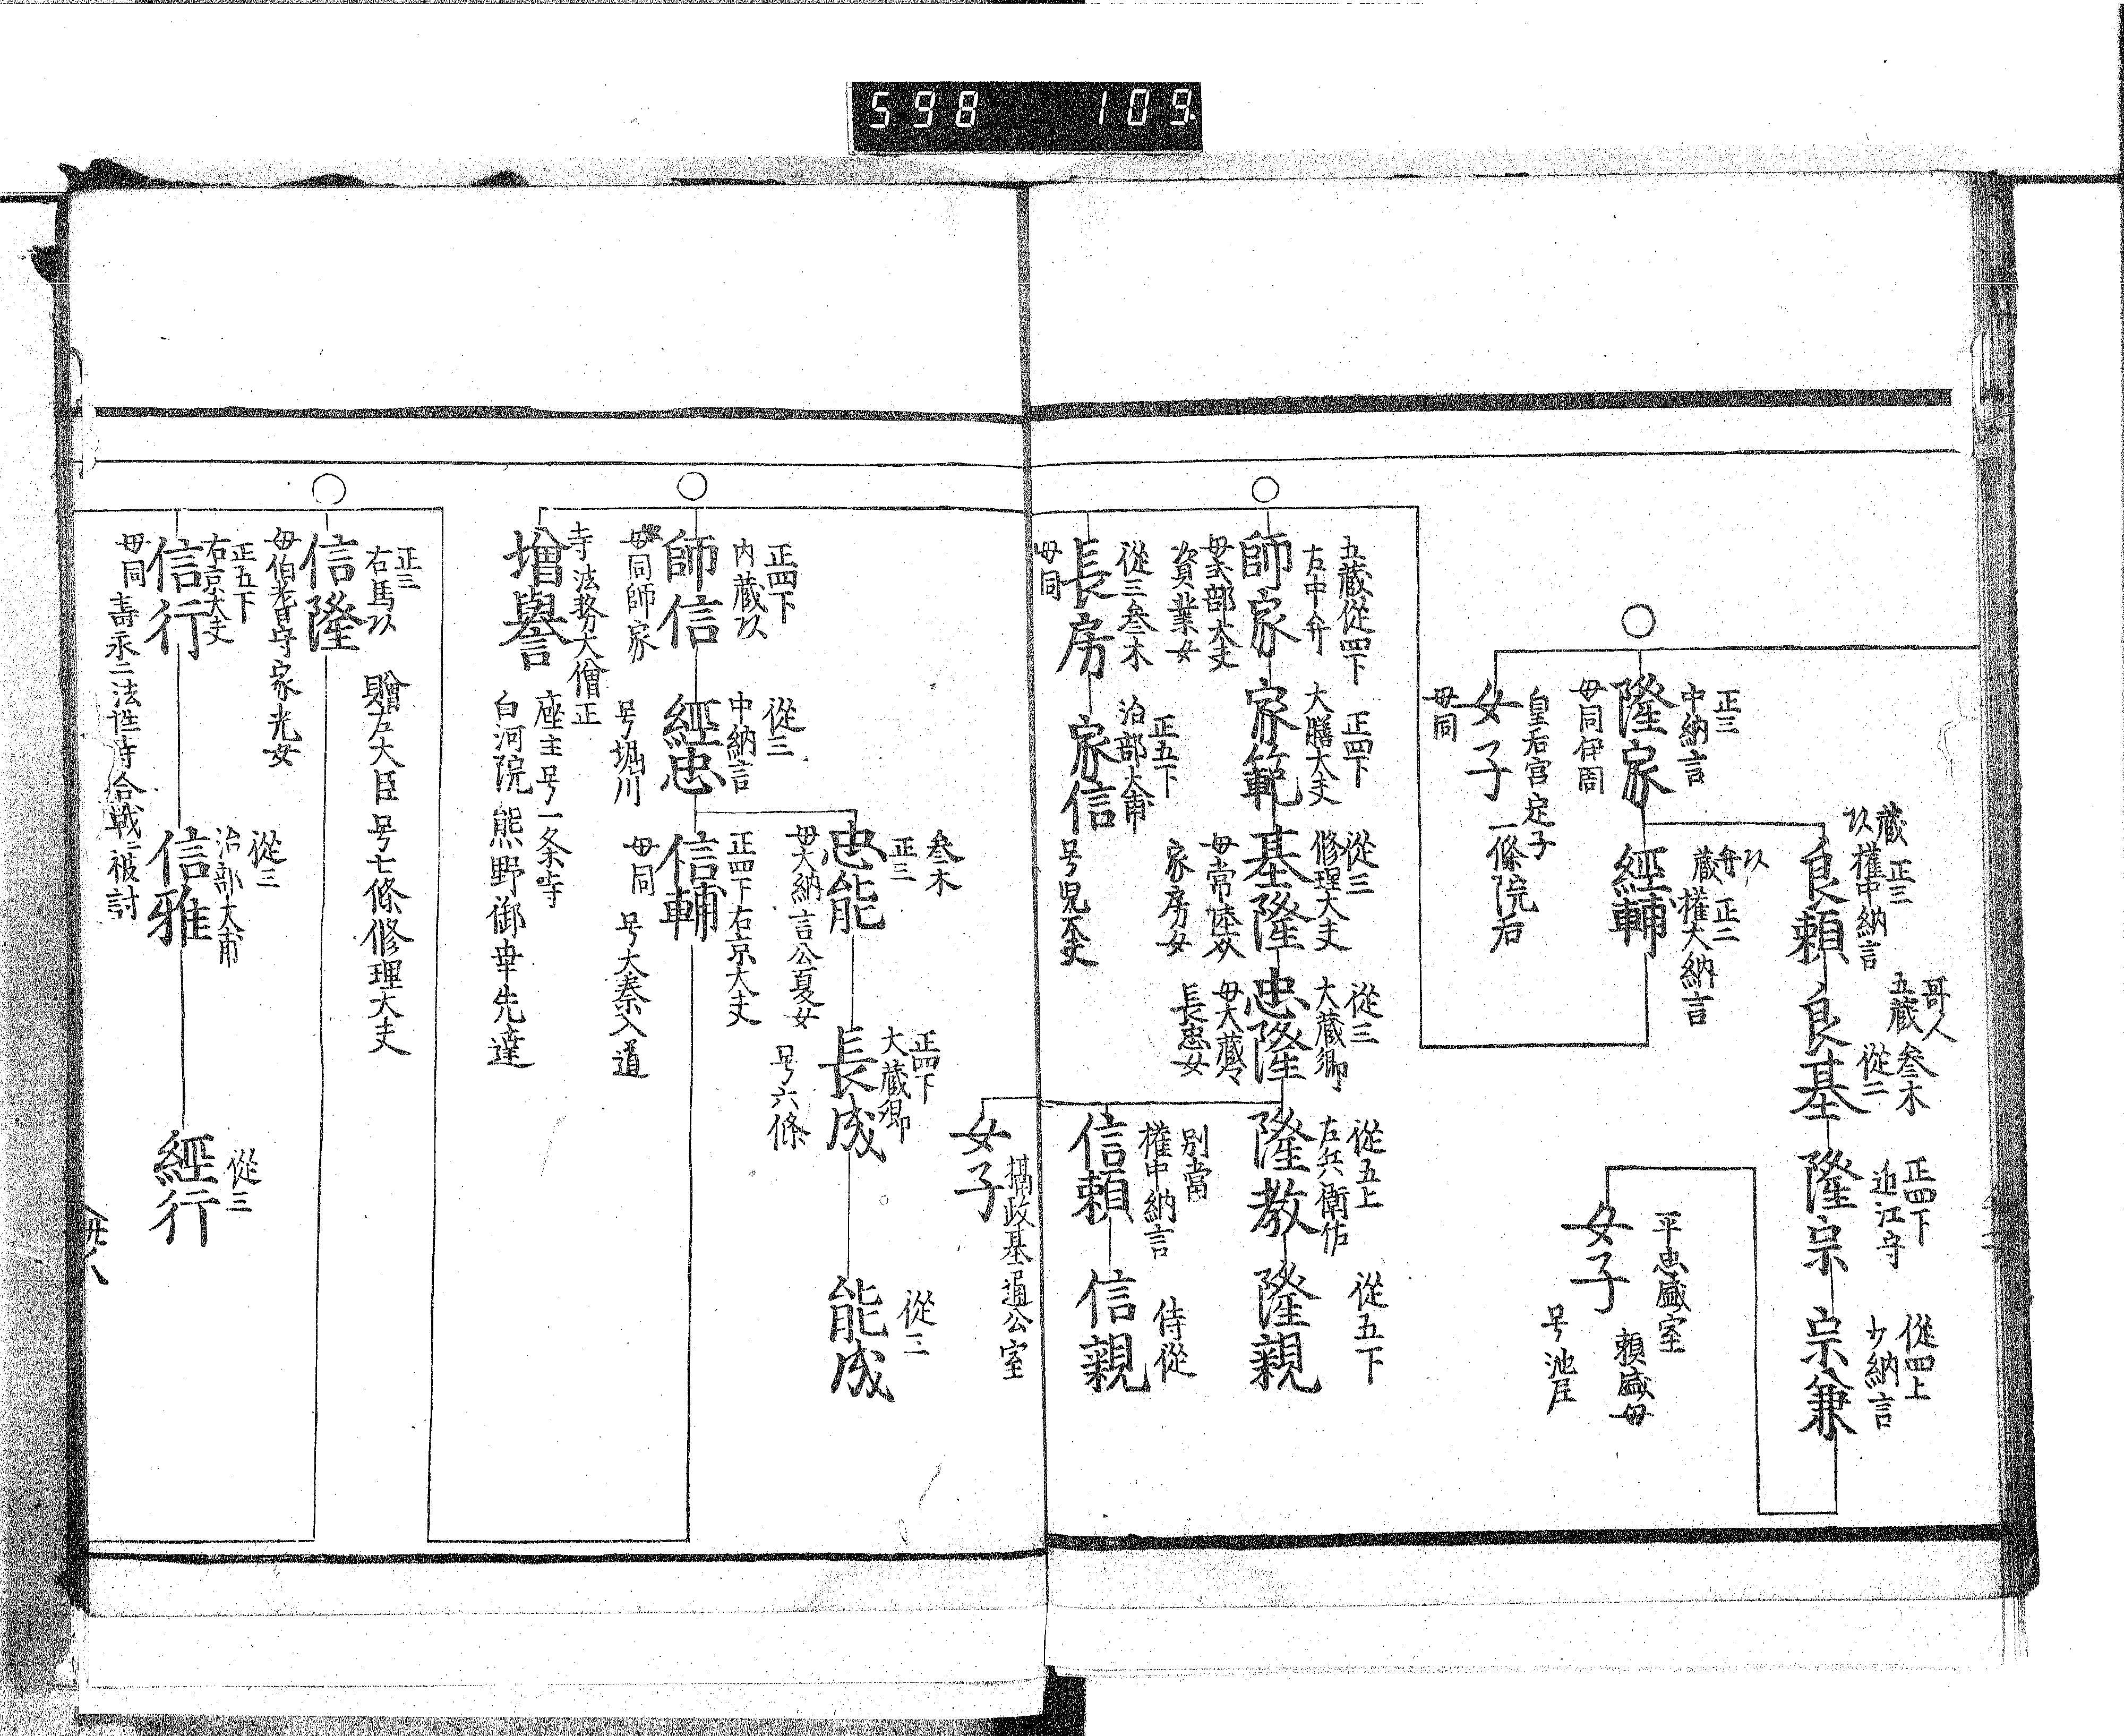 598 109
正三
中納言
隆家
母同伊周
皇后宮定子
一條院后
女子
母同
蔵 正三
权中納言
良頼
哥人
五蔵
叁木
從二
良基
正四下
近江守
隆宗
從四上
少納言
宗兼
平忠盛室
頼盛母
女子
号池尼
正二
權大納言
經輔
五蔵從四下
右中弁
師家
母式部大夫
資業女
正四下
大膳大夫
家範
從三
修理大夫
基隆
母常陸
家房女
從三
大蔵卿
忠隆
長忠女
從五上
左兵衛佐
隆教
從五下
隆親
別當
權中納言
信頼
侍從
信親
攝政基通公室
女子
從三叁木
長房
母同
正五下
治部大甫
家信
正四下
師信
母同師家
從三
中納言
經忠
号堀川
叁木
正三
忠能
母大納言公夏女
正四下
大蔵卿
長成
号六條
從三
能成
正四下右京大夫
信輔
母同
号大秦入道
寺法務大僧正
増誉
座主号一条寺
白河院熊野御幸先達
正三
信隆
母伯耆守家光女
贈左大臣号七條修理大夫
正五下
右京大夫
信行
母同
壽永二法性寺合戦被討
從三
治部大甫
信雅
從三
經行